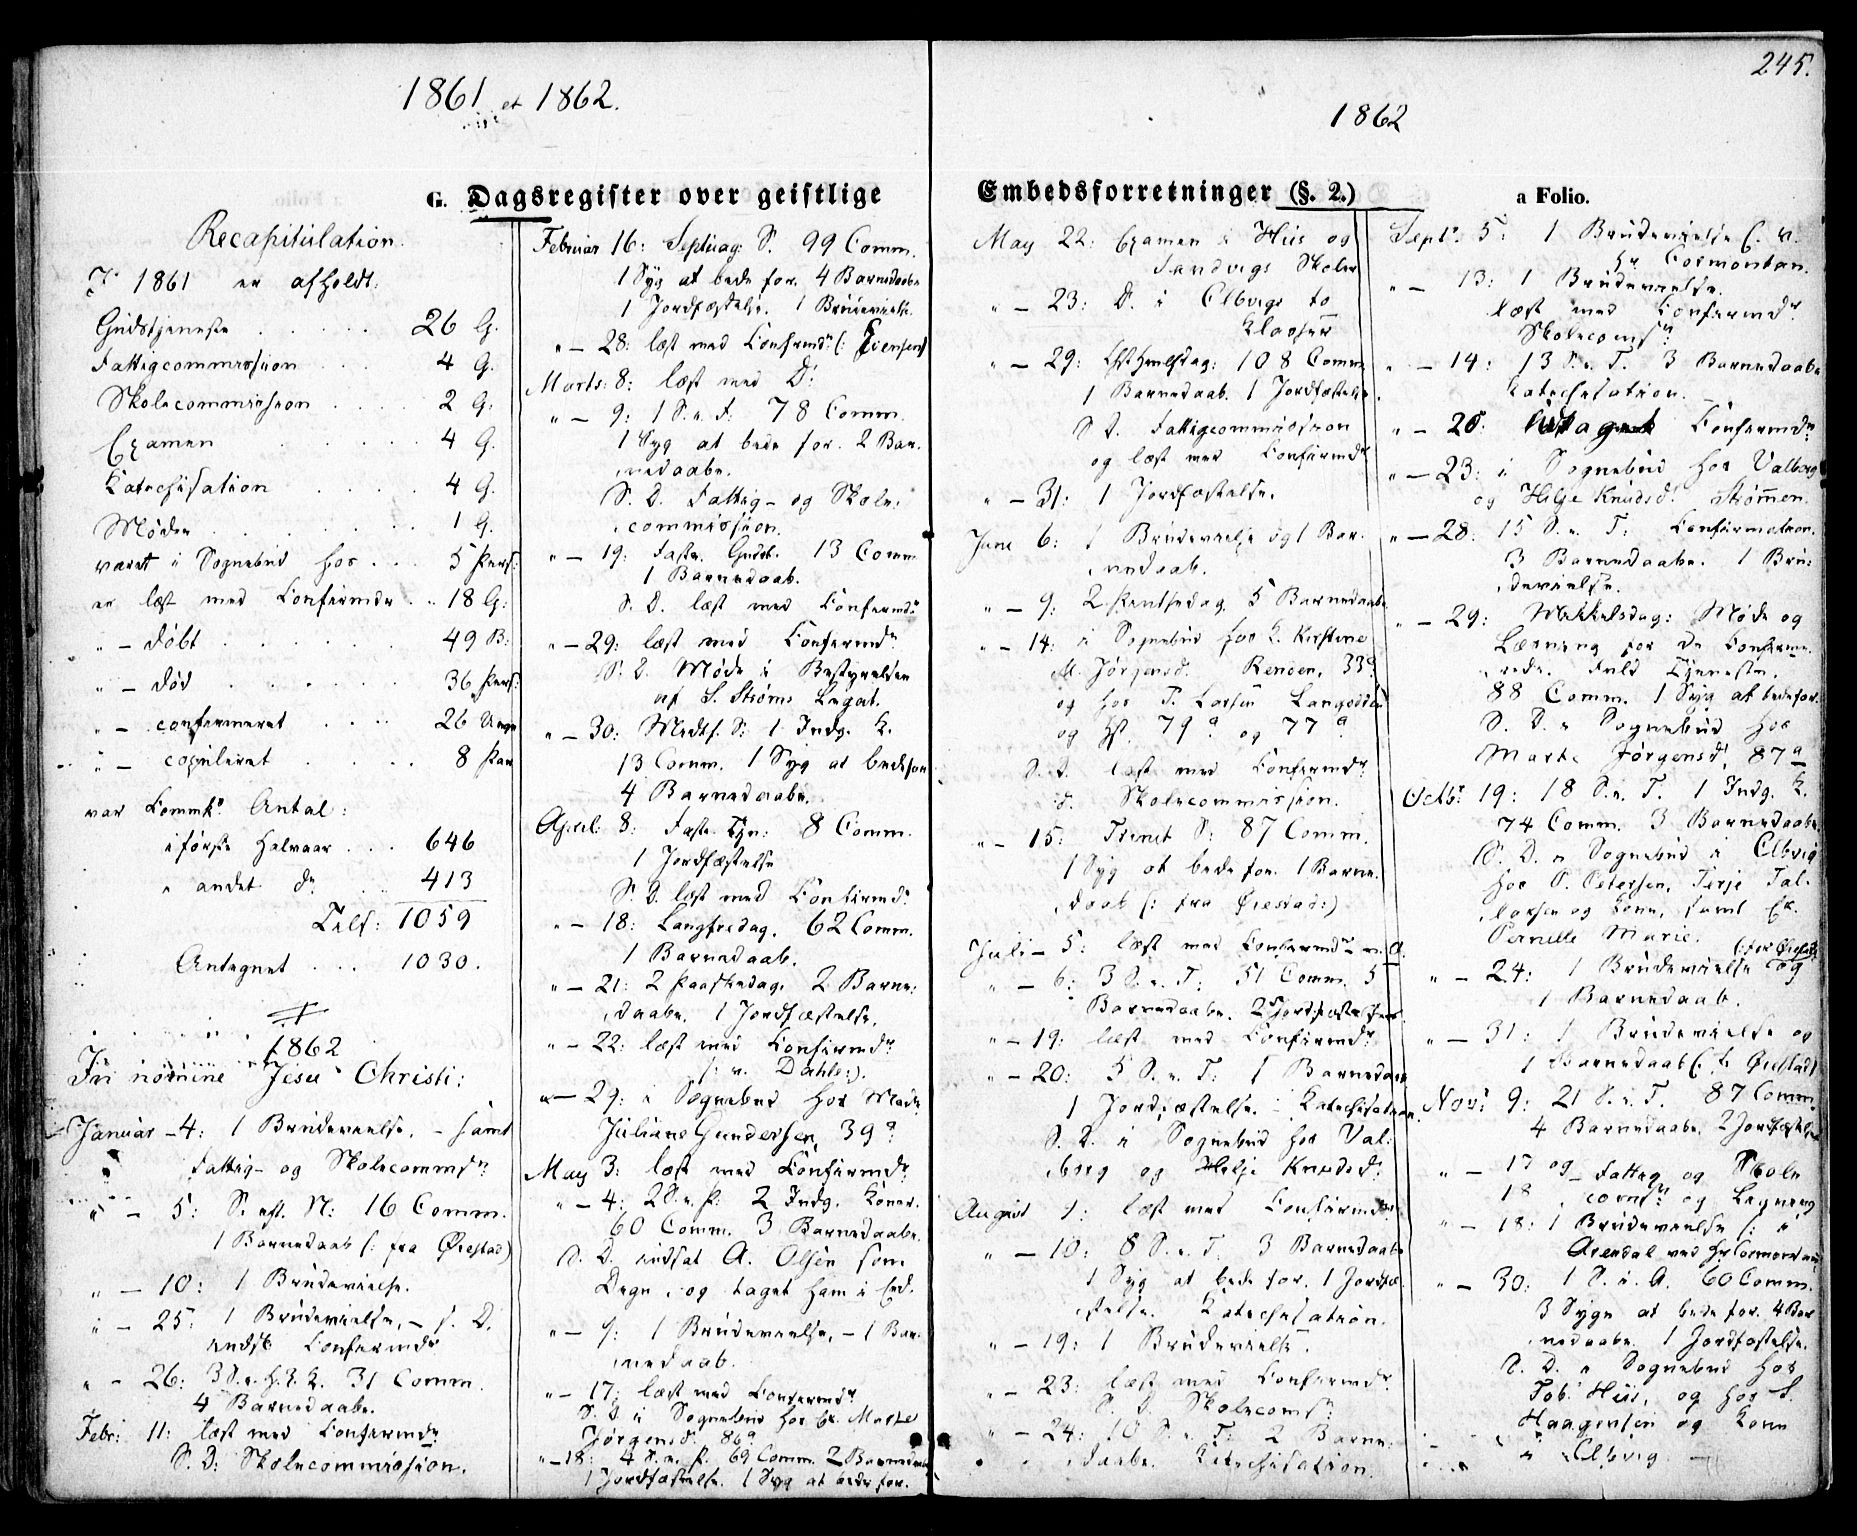 245.
1861 et 1862.
1862
G. Dagsregister over geistlige
Embedsforretninger (§. 2.)
a Folio.
Recapitulation.
I 1861 er afholdt:
Gudstjeneste . . . . . 26 G.
Fattigcommission . . . 4 G.
Skolecommission . . . . 2 G.
Examen . . . . . 4 G.
Katechisation . . . . 4 G.
Møder . . . . . 1 G.
været i Sognebud hos . . . 5 Pers:
er læst med Confirmder . . 18 G:
" – døbt . . . . . 49 B:
" – død . . . . . 36 Pers:
" – confirmeret . . . . 26 Unge
" – copuleret . . . . 8 Par
var Commk. Antal:
i første Halvaar . . . 646
" andet do . . 413
Tils: 1059
Antegnet . . . 1030.
1862
In nomine Jesu Christi:
Januar – 4: 1 Brudevielse, – samt
Fattig- og Skolecommsn
" – 5: S. eft. N: 16 Comm.
1 Barnedaab (: fra Øiestad)
" – 10: 1 Brudevielse.
" – 25: 1 Brudevielse, – s. D.
Confirmdr
" – 26: 3 S. e. H. 3 K. 31 Comm.
4 Barnedaabe.
Febr: 11: læst med Confirmdr
S. D: Skolecommission.
Februar 16: Septuag. S. 99 Comm.
1 Syg at bede for. 4 Barnedaabe
1 Jordfæstelse. 1 Brudevielse.
" – 28: læst med Confirmdr
Marts: 8: læst med Do:
" – 9: 1 S. i F. 78 Comm.
1 Syg at bede for. 2 Bar-
nedaabe.
S. D. Fattig- og Skole-
commission.
" – 19: Faste. Gudst. 13 Comm
1 Barnedaab.
S. D. læst med Confirmdr
" – 29: læst med Confirmdr
S. D. Møde i Bestyrelsen
af S. Strøms Legat.
" – 30: Midtf. S: 1 Indg. K.
13 Comm. 1 Syg at bede for
4 Barnedaabe.
April: 8: Faste Tjn: 8 Comm.
1 Jordfæstelse
S. D. læst med Confirmdr
" – 18: Langfredag. 62 Comm.
1 Barnedaab.
" – 21: 2 Paaskedag. 2 Barne-
daabe. 1 Jordfæstelse.
" – 22: læst med Confirmdr
(: v. Dahle:).
" – 29: i Sognebud hos Mad.
Juliane Gundersen, 39 a.
May 3: læst med Confirmdr
" – 4: 2 S. e. P. 2 Indg. Koner.
60 Comm. 3 Barnedaabe.
S. D. indsat A. Olsen som
Degn, og taget ham i Ed.
" – 9: 1 Brudevielse, – 1 Bar-
nedaab.
" – 17: læst med Confirmdr
S. D. i Sognebud hos Ek. Marte
Jørgensd. 86 a
" – 18: 4 S. e. P. 69 Comm. 2 Barnedaabe
1 Jordfæstelse. 1 Syg at bede for.
May 22: Examen i Hiis og
Sandvigs Skoler
" – 23: Do. i Elbvigs to
Klasser
" – 29: Chr Himlfdag: 108 Comm.
1 Barnedaab. 1 Jordfæstelse.
S D. Fattigcommission
og læst med Confirmdr
" – 31: 1 Jordfæstelse.
Juni 6: 1 Brudevielse og 1 Bar-
nedaab.
" – 9: 2 Pintsedag. 5 Barnedaabe
" – 14: i Sognebud hos K. Kirstine
M. Jørgensd. Renden, 33 a
og hos T. Larsen Langedal
og Hst. 79 a og 77 a
S. D. læst med Confirmdr
d. Skolecommission.
" – 15: Trinit S: 87 Comm.
1 Syg at bede for. 1 Barne-
daab (: fra Øiestad:)
Juli – 5: læst med Confirmdr
" – 6: 3 S. e. T: 51 Comm. 5
Barnedaabe. 2 Jordfæstelser.
" – 19: læst med Confirmdr
" – 20: 5 S. e. T: 1 Barnedaab
1 Jordfæstelse. Katechisation.
S. D. i Sognebud hos Val-
borg og Helje Knudsd.
August 9: læst med Confirmdr
" – 10: 8 S. e. T. 3 Barnedaabe
1 Syg at bede for. 1 Jordfæ-
stelse. Katechisation.
" – 19: 1 Brudevielse.
" – 23: læst med Confirmdr.
S. D. Skolecomsn
" – 24: 10 S. e. T: 2 Barne-
daabe. Katechisation.
Septr. 5: 1 Brudevielse
Hr Cormontan.
" – 13: 1 Brudevielse.
læst med Confirmdr
Skolecomsn
" – 14: 13 S. e. T. 3 Barnedaabe
Katechisation.
" – 20: Confirmdr
" – 23: i Sognebud hos Valborg
og Helje Knudsd. Strømmen.
" – 28: 15 S. e. T: Confirmation.
3 Barnedaabe. 1 Bru-
devielse.
" – 29: Mikkelsdag: Møde og
Læsning for de Confirme-
rede. Fuld Tjeneste.
88 Comm. 1 Syg at bede for.
S. D. i Sognebud hos
Marte Jørgensd. 87 a
Octbr. 19: 18 S. e. T. 1 Indg. K.
74 Comm. 3 Barnedaabe.
S. D. i Sognebud i Elbvig
hos P. Petersen, Terje Tal-
laksen og Kone, samt Ek.
Pernille Marie.
" – 24: 1 Brudevielse og
1 Barnedaab.
" – 31: 1 Brudevielse og
1 Barnedaab (: fr Øiestad)
Nov: 9: 21 S. e. T. 87 Comm.
4 Barnedaabe. 2 Jordfæstelser
" – 17 og Fattig og Skole
18 comsn og Ligning
" – 18: 1 Brudevielse (: i
Arendal ved Hr Cormontan
" – 30: 1 S. i. A. 60 Comm.
3 Syge at bede for. 4 Bar-
nedaabe. 1 Jordfæstelse.
S. D. i Sognebud hos
Tob. Hiis, og hos S.
Haagensen og Kone
i Elbvig